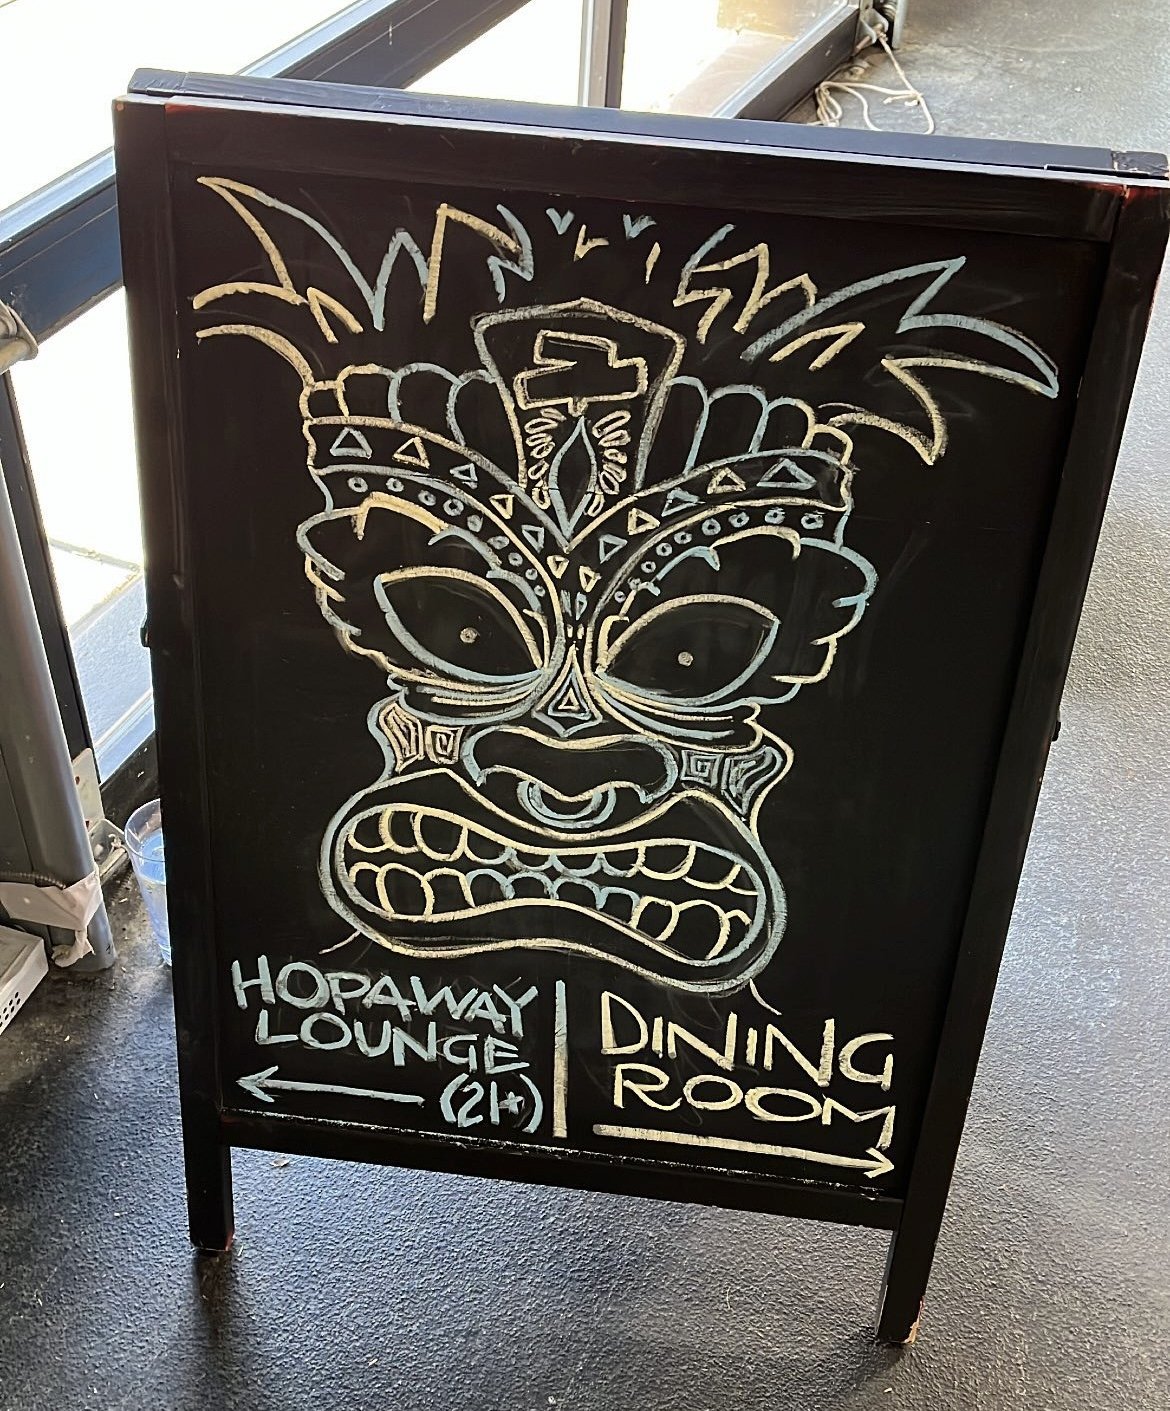 HOPAWAY
LOUNGE
(21+)
DINING
ROOM